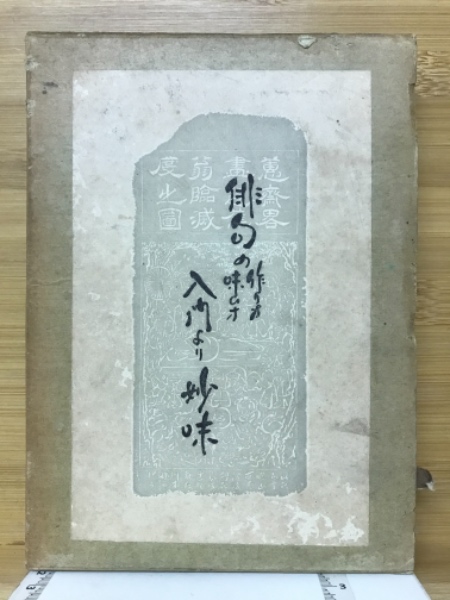 俳句の
作り方
味ひ方
入門より妙味
蕙齋畧
畫
翁臨滅
度之圖